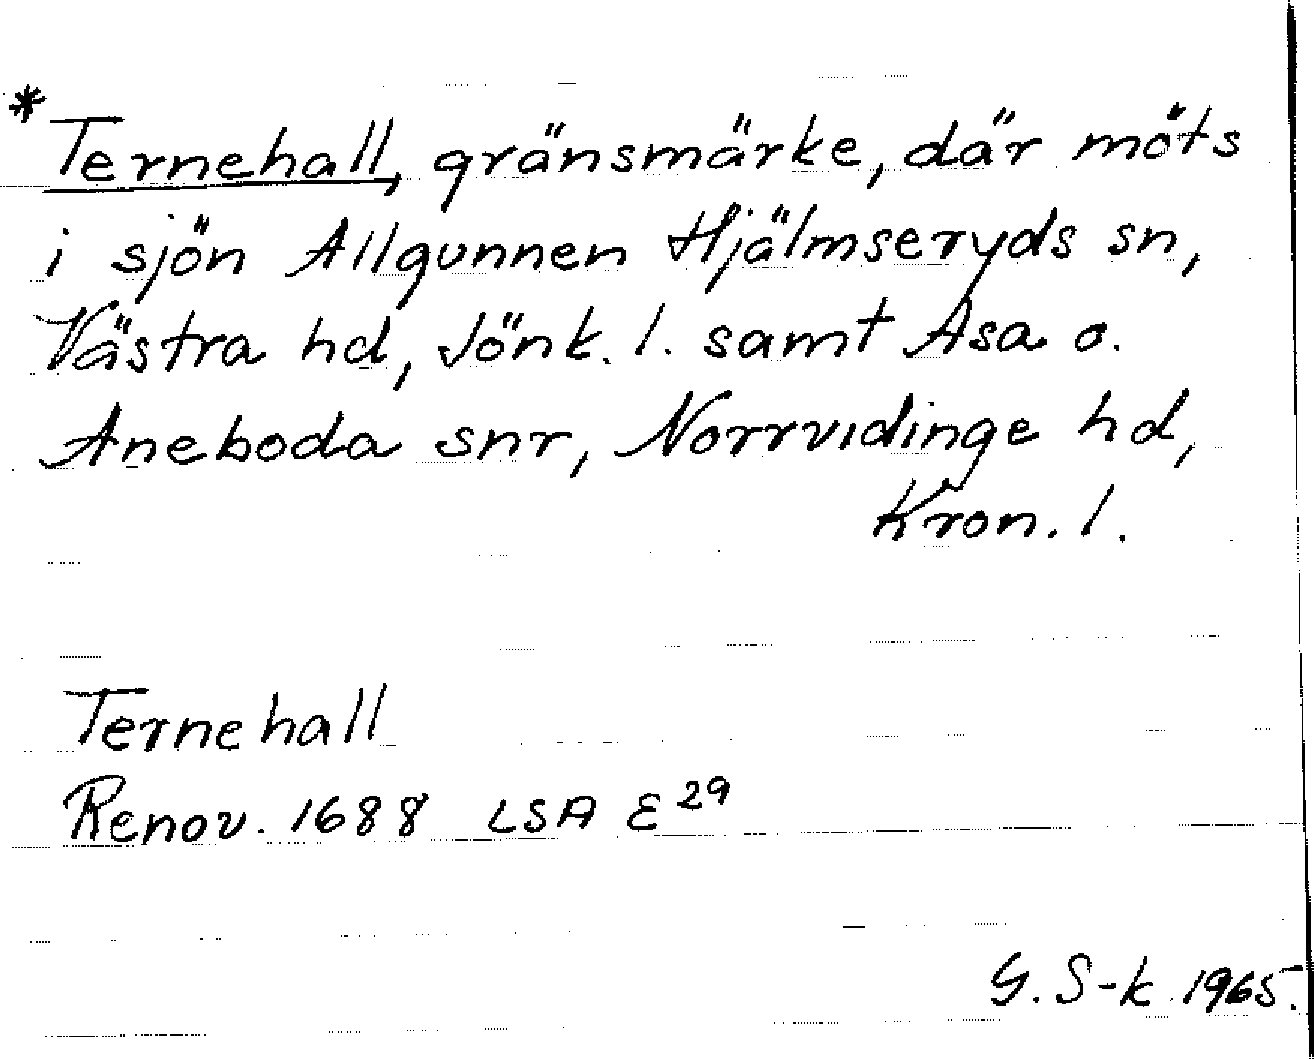 *Ternehall, gränsmärke, där möts
i sjön Allgunnen Hjälmseryds sn,
Västra hd, Jönk. l. samt Asa o.
Aneboda snr, Norrvidinge hd,
Kron. l.
Ternehall
Renov. 1688 LSA E 29
G. S-k 1965.